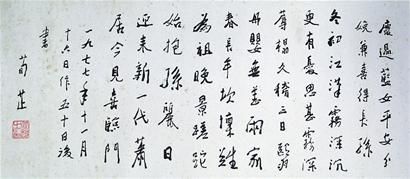 過藍女平安分
娩兼喜得長孫
冬初江漢霧深沉
更有憂思甚霧深
蓐榻久稽三日
母嬰無恙兩家
春長年坎壈難
為祖晚景蹉跎
始抱孫麗日
迎來新一代蕭
居今見喜臨門
一九七七年十一月
十六日作五十日後
書